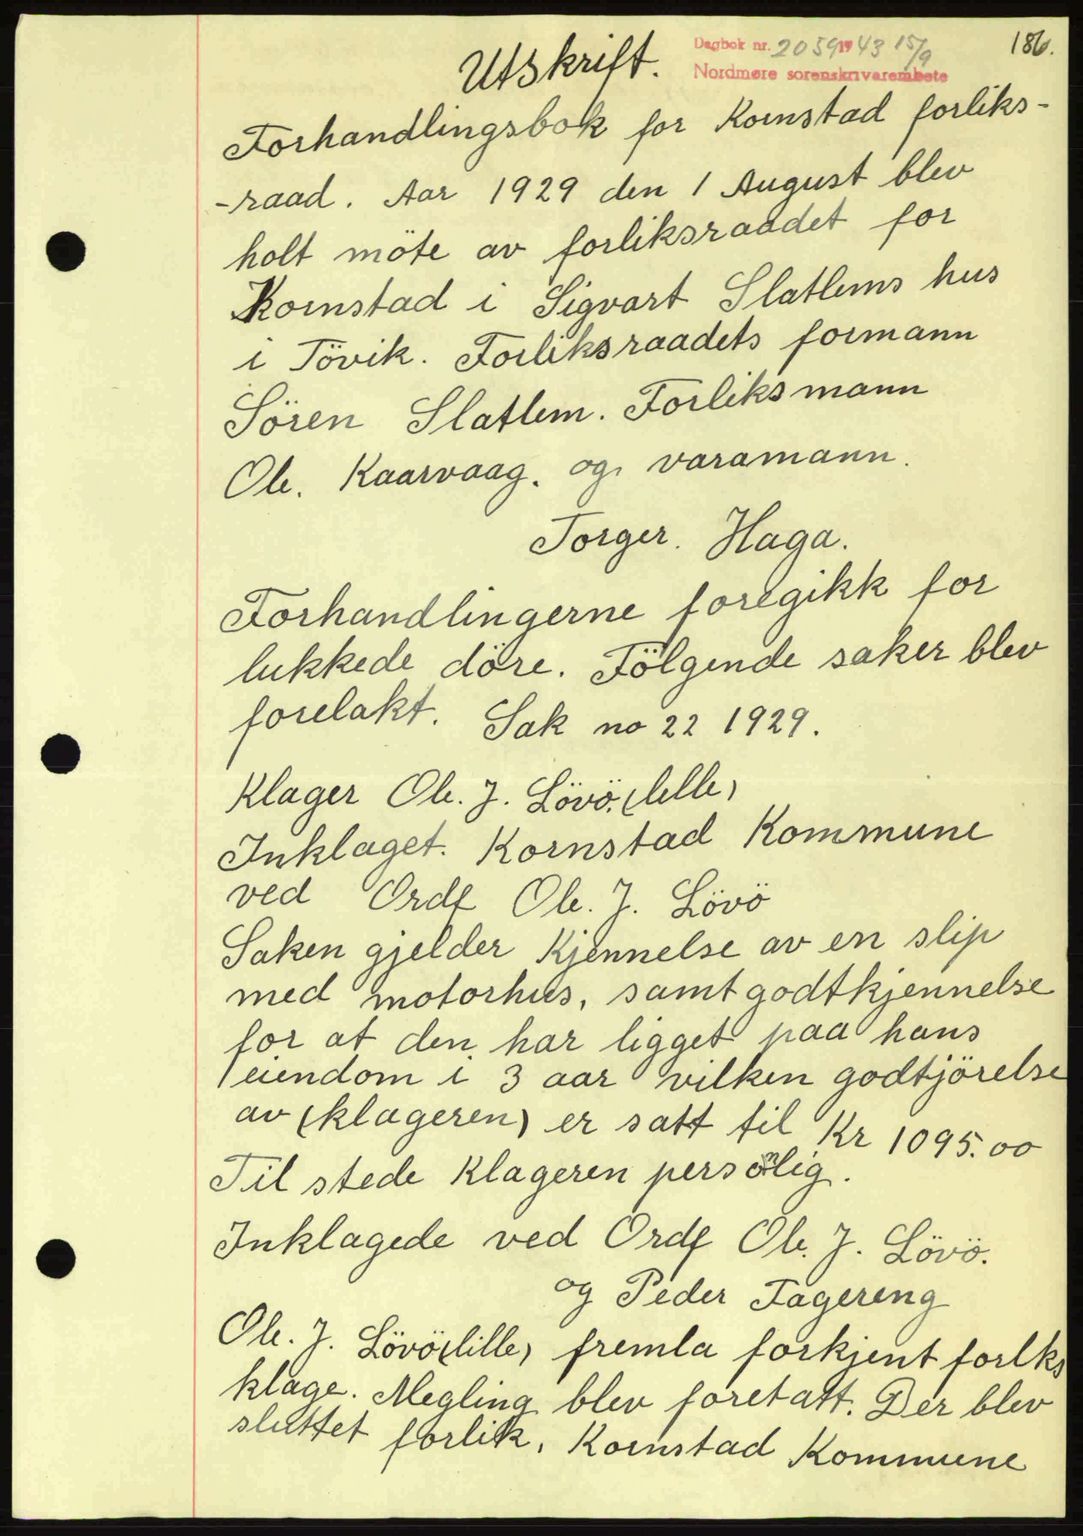 Utskrift.
Dagbok nr. 2059 1943 15/9
Nordmøre sorenskrivarembete
186.
Forhandlingsbok for Kornstad forliks-
-raad. Aar 1929 den 1 August blev
holt möte av forliksraadet for
Kornstad i Sigvart Slatlems hus
i Tövik. Forliksraadets formann
Sören Slatlem. Forliksmann
Ole. Kaarvaag. og varamann.
Torger. Haga.
Forhandlingerne foregikk for
lukkede döre. Fölgende saker blev
forelakt. Sak no 22 1929.
Klager Ole. J. Lövö. (lille)
Inklaget. Kornstad Kommune
ved Ordf Ole. J. Lövö
Saken gjelder Kjennelse av en slip
med motorhus, samt godtkjennelse
for at den har ligget paa hans
eiendom i 3 aar vilken godtjörelse
av (klageren) er satt til Kr 1095.00
Til stede Klageren personlig.
Inklagede ved Ordf Ole. J. Lövö.
og Peder Fagereng
Ole. J. Lövö (lille) fremla forkjent forlks
klage. Megling blev foretatt. Der blev
sluttet forlik, Kornstad Kommune